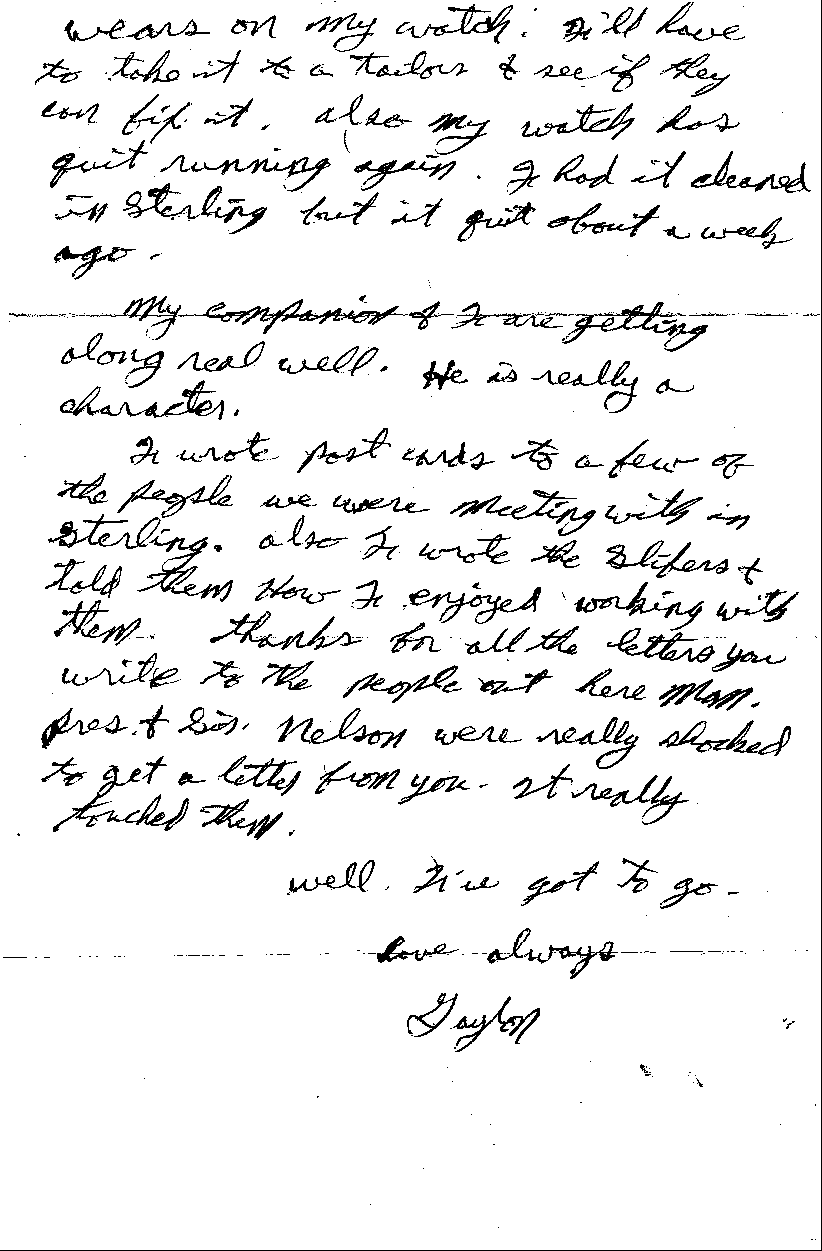 wears on my watch. I'll have
to take it to a tailors & see if they
can fix it. also my watch has
quit running again. I had it cleaned
in Sterling but it quit about a week
ago.
My companion & I are getting
along real well. He is really a
character.
I wrote post cards to a few of
the people we were meeting with in
Sterling. also I wrote the Slifers &
told them How I enjoyed working with
them. thanks for all the letters you
write to the people out here Mom.
pres. & Sis. Nelson were really shocked
to get a letter from you. It really
touched them.
well. I've got to go -
Love always
Gaylon